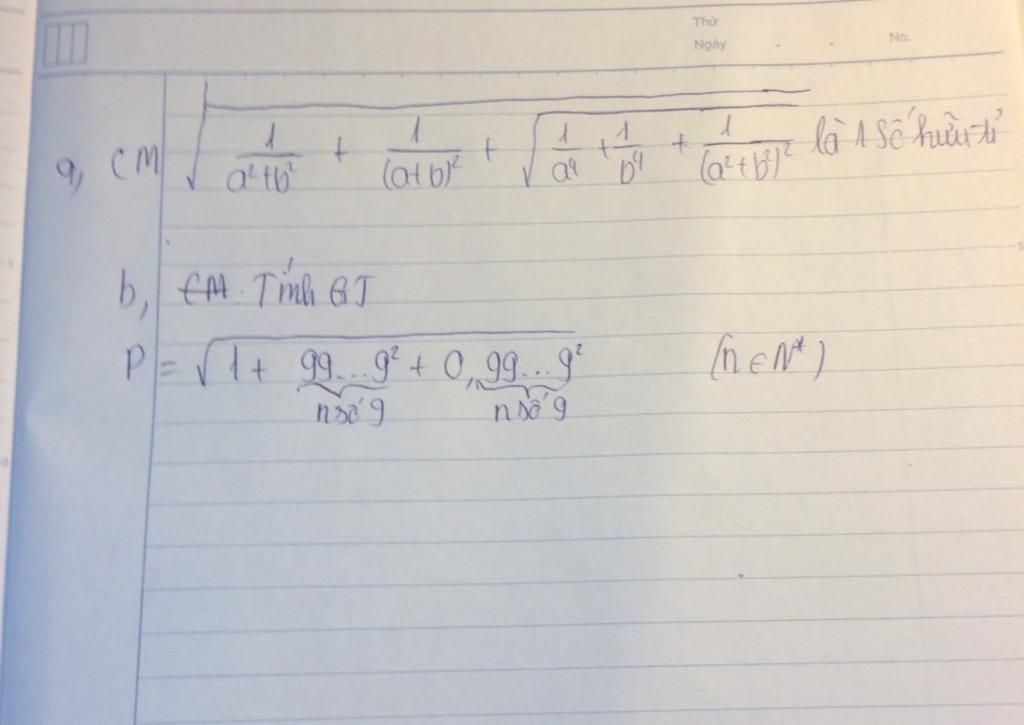 Thứ
Ngày . . No.
a, CM √(1/(a²+b²) + 1/(a+b)² + √(1/a⁴ + 1/b⁴ + 1/(a²+b²)²)) là 1 số hữu tỉ
b, CM. Tính GT
P = √(1 + 99...9² + 0,99...9²) (n ∈ N*)
n số 9 n số 9